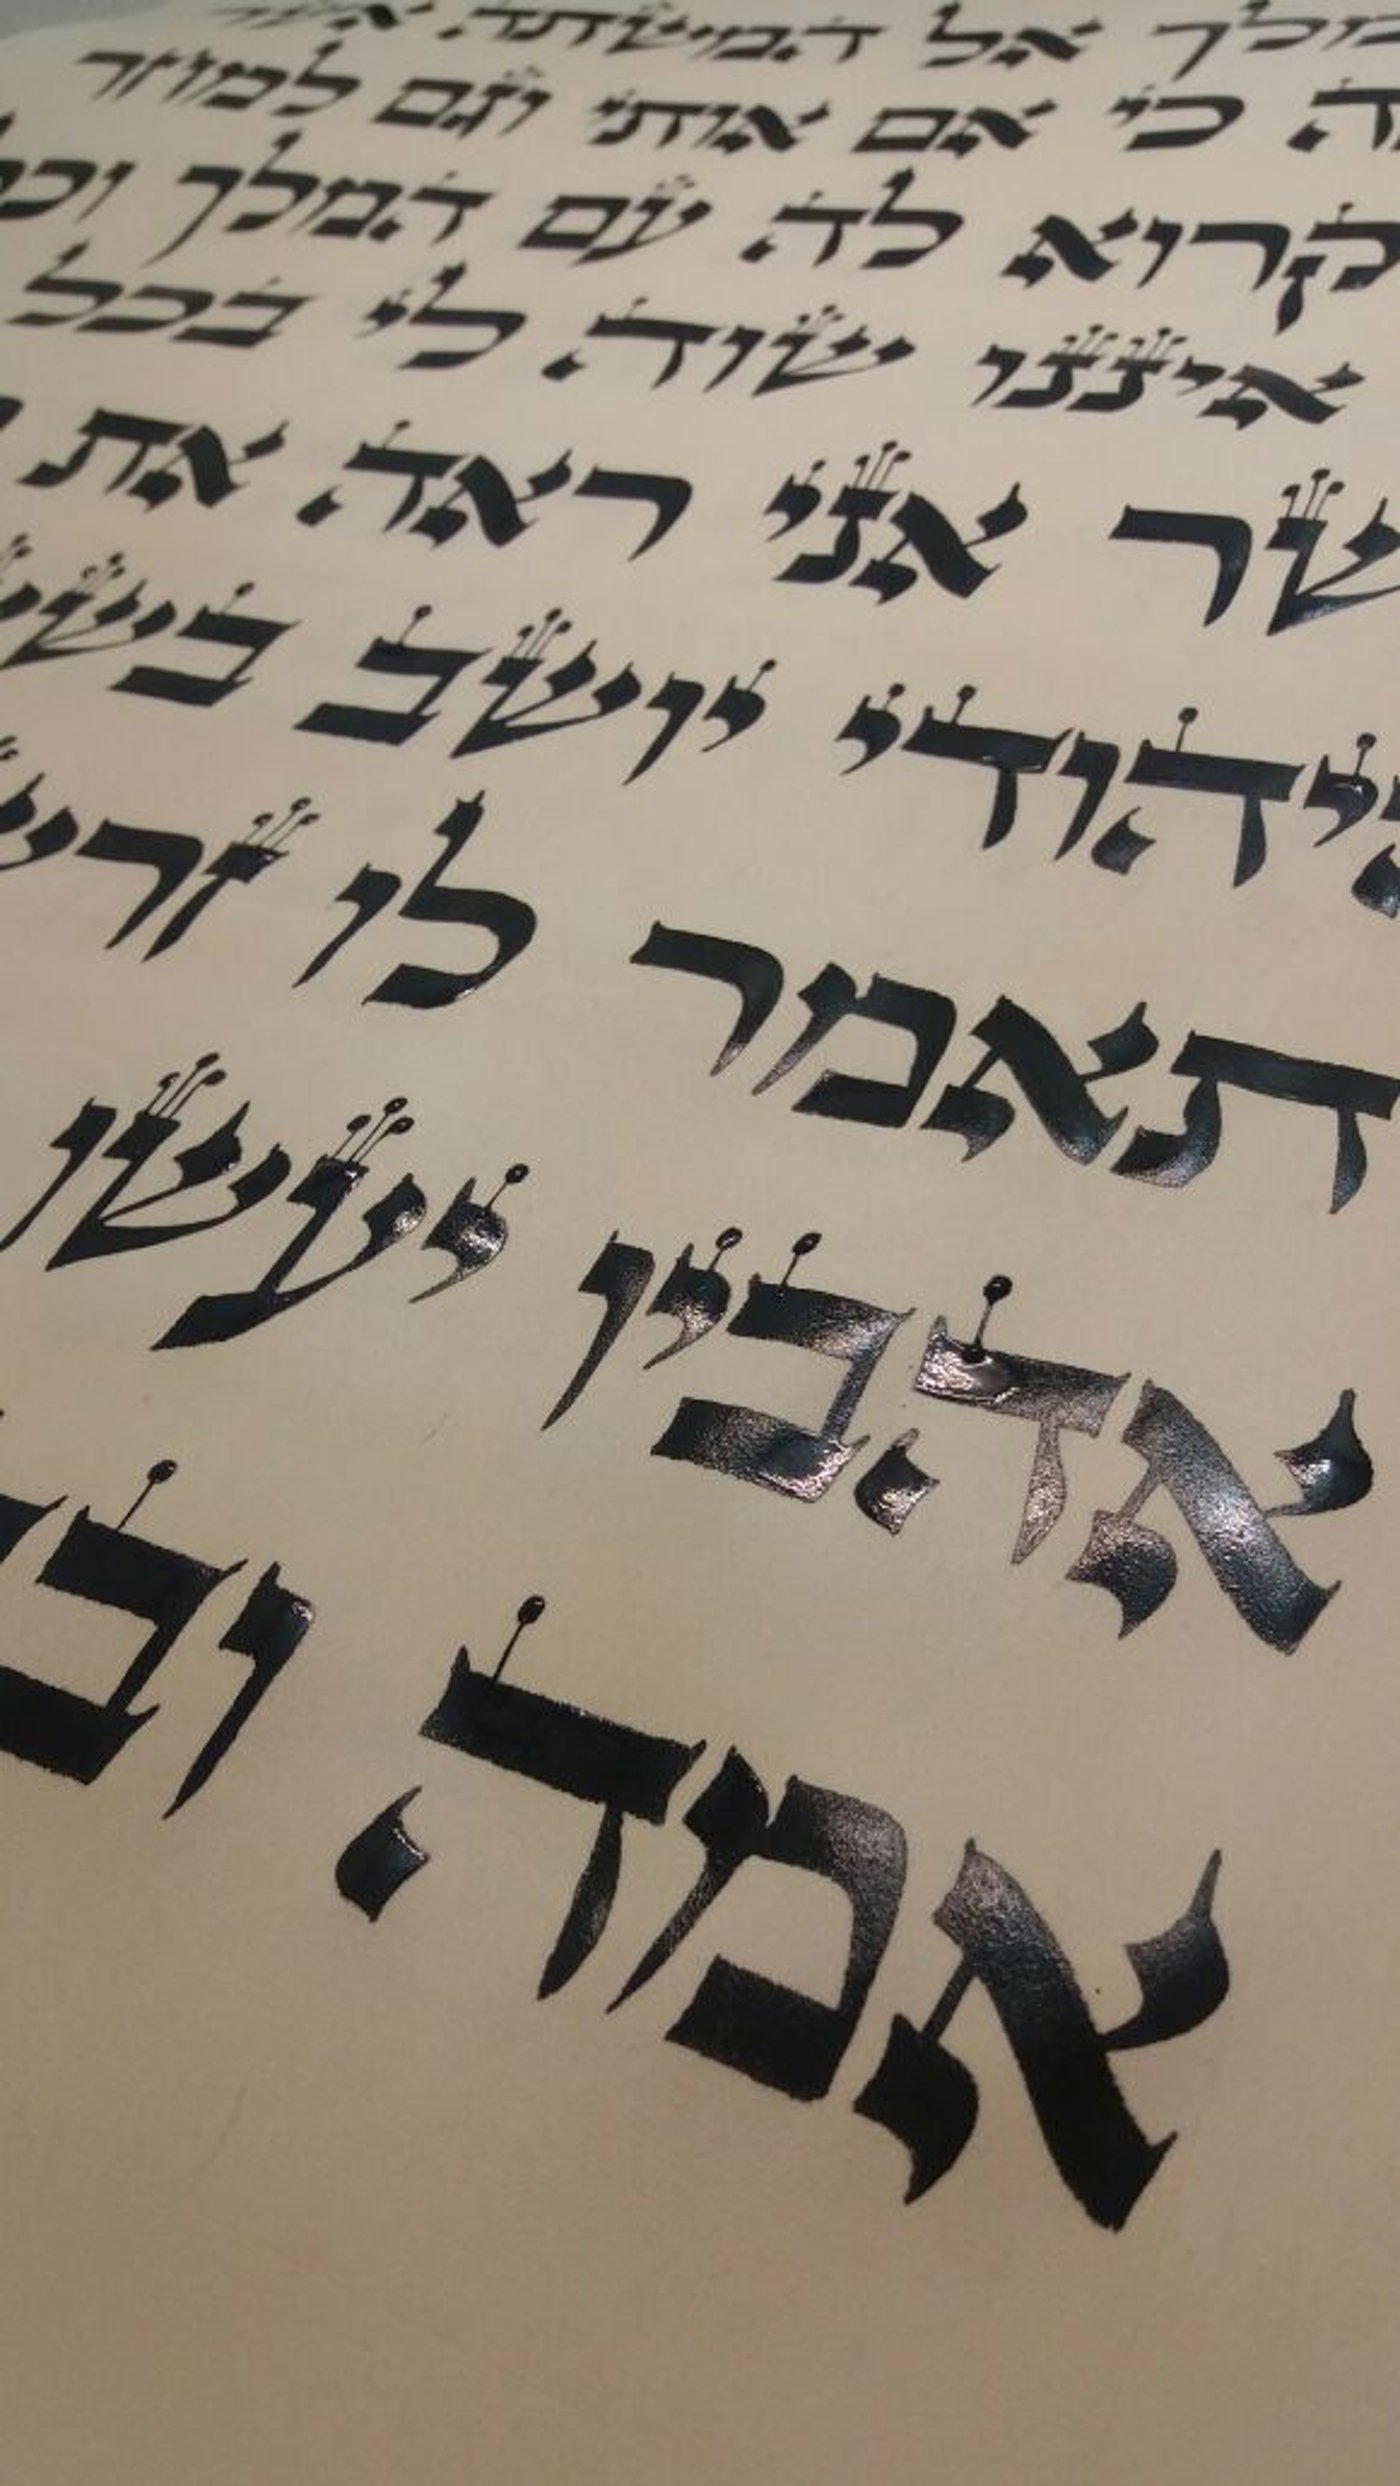 מלך אל המשתה אשר
ה כי אם אותי וגם למחר
קרוא לה עם המלך וכל
איננו שוה לי בכל
שר אני ראה את
היהודי יושב בש
תאמר לו זרש
אהביו יעשו
אמה וב